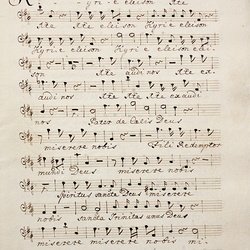 Kyrie eleison Xte
Xte Xte eleison Kyrie eleison
Kyrie eleison Kyrie elei-
son Xte audi nos Xte ex
audi nos Xte Xte exaudi
nos Pater de Cælis Deus
miserere nobis Fili Redemptor
mundi Deus miserere nobis
Spiritus sancte Deus miserere
nobis sancta Trinitas unus Deus
miserere nobis miserere nobis mi-